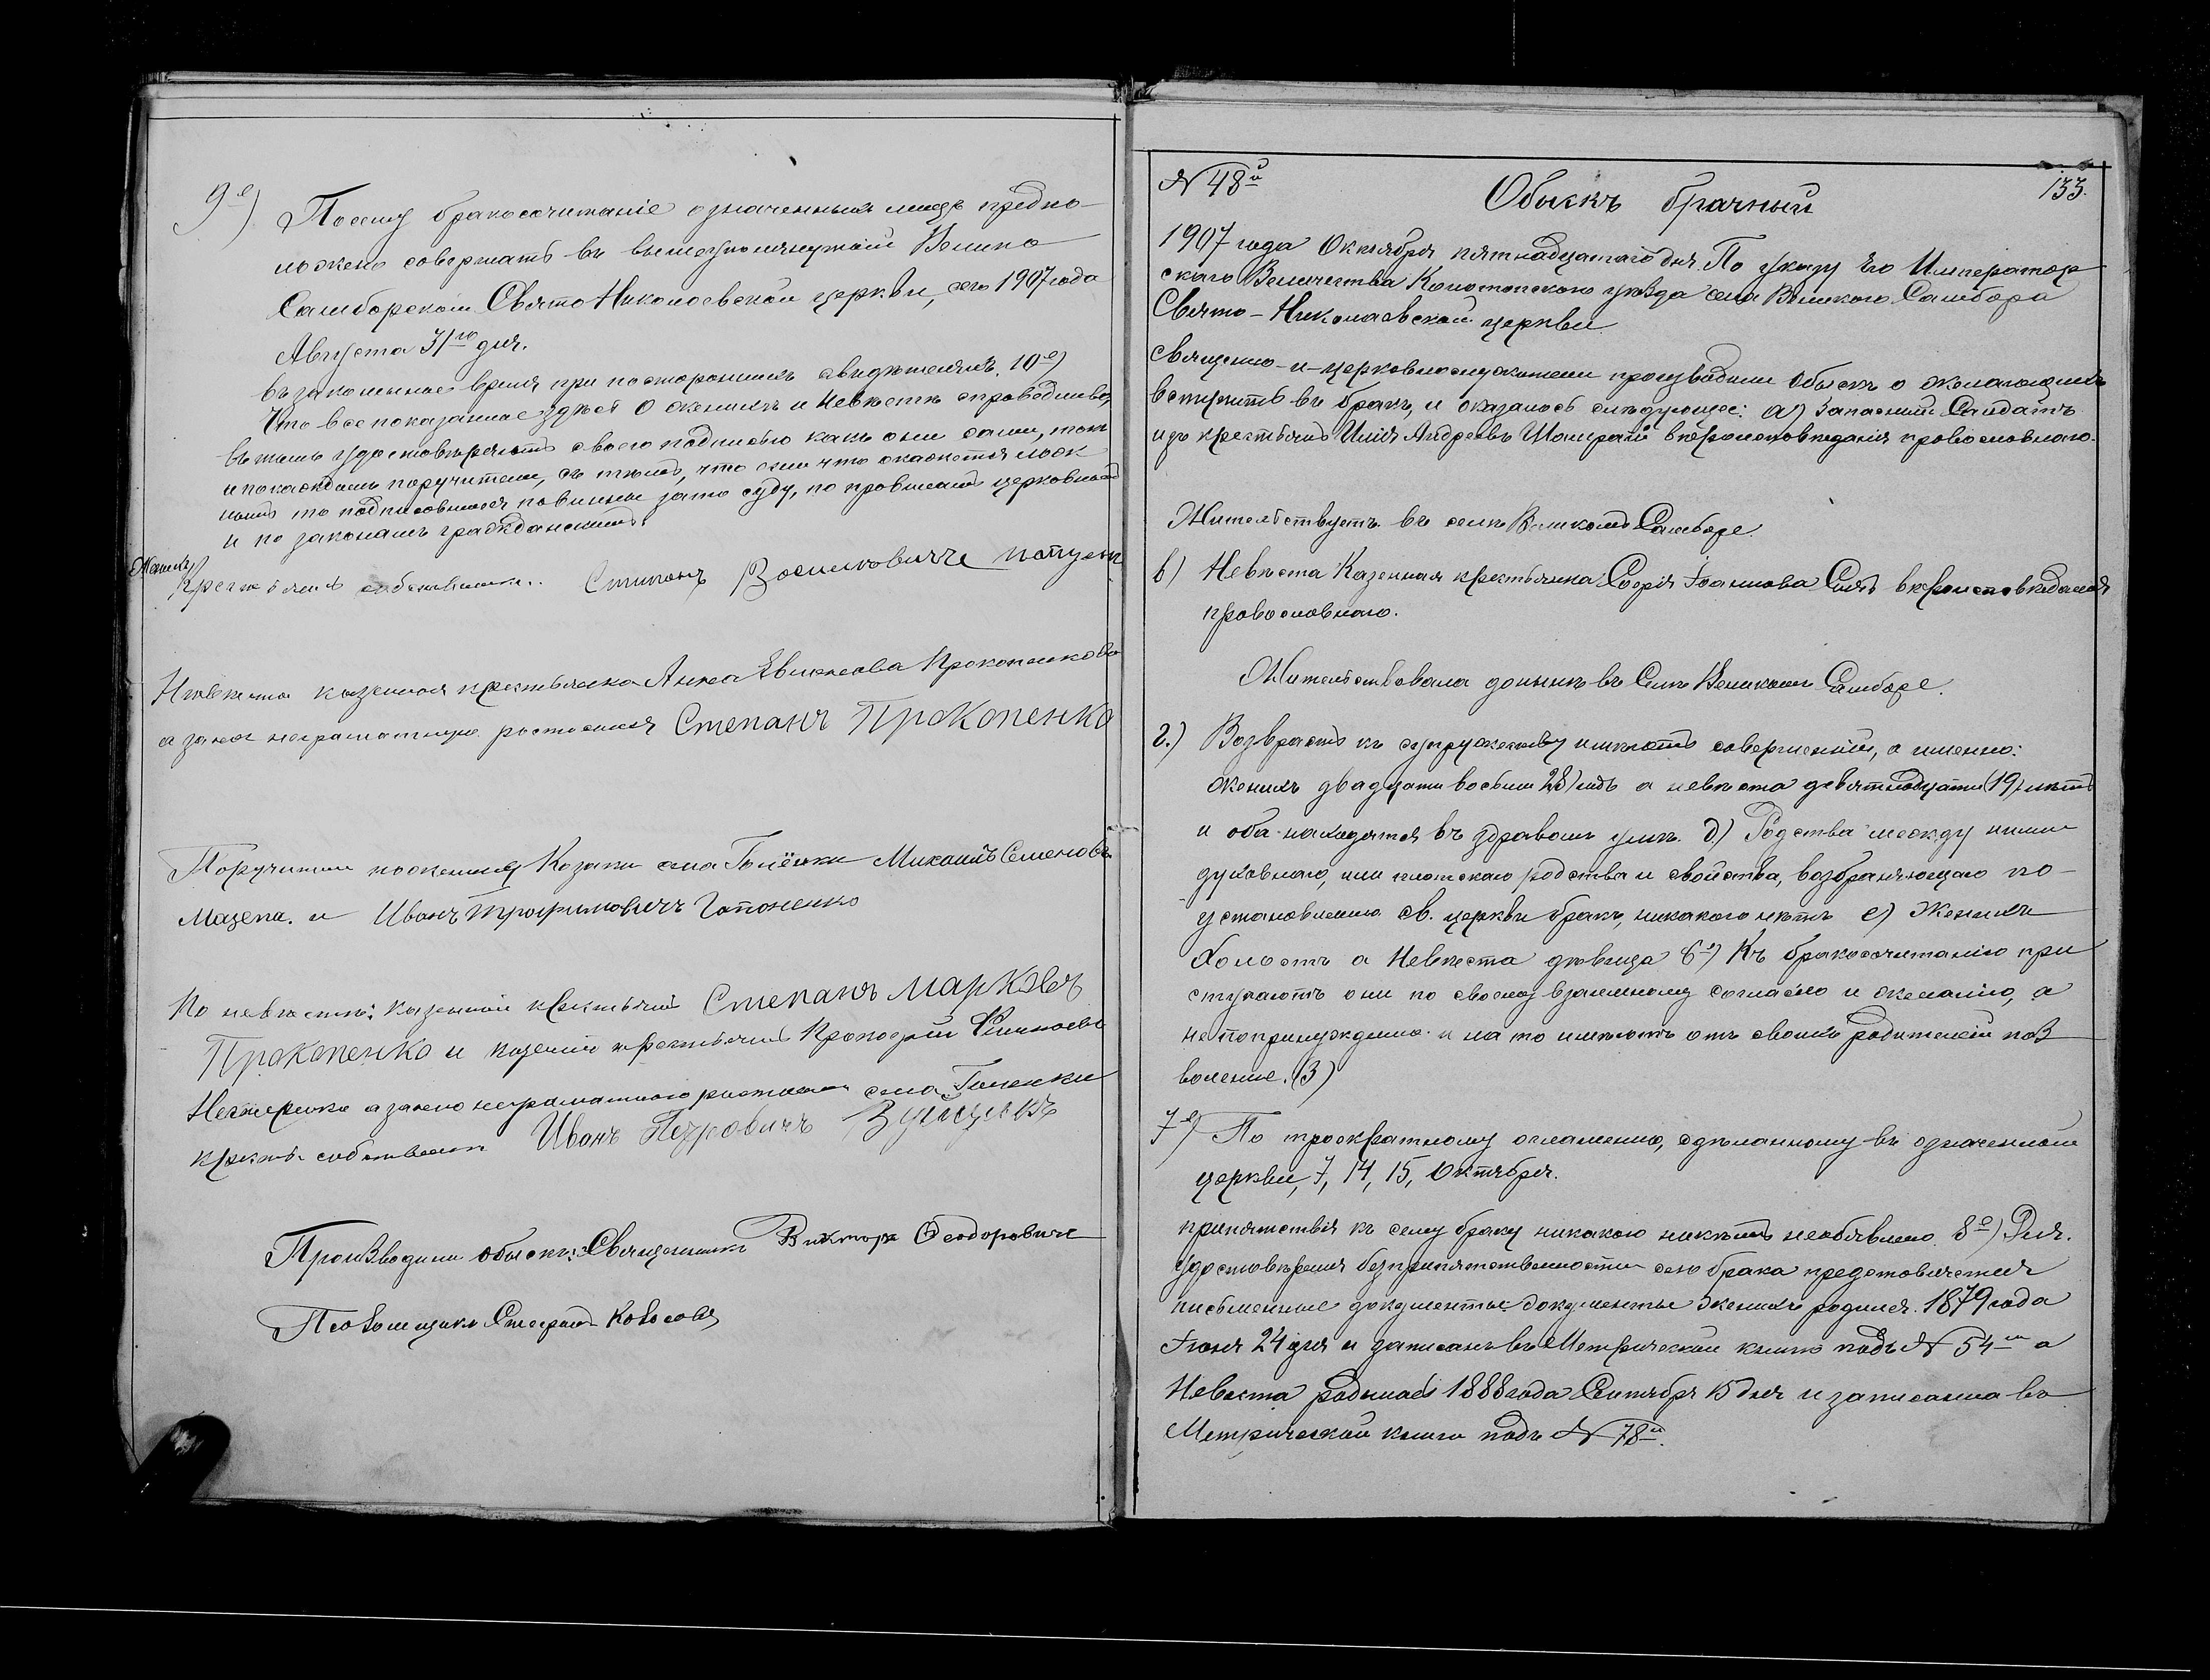 9е) Посему бракосочетаніе означенныхъ лицъ предпо
ложено совершать въ вышеупомянутой Велико
Самборской Свято Николаевской церкви, сего 1907 года
Августа 31го дня.
въ законное время при постороннихъ свидѣтеляхъ. 10е)
Что все показанное здѣсь о женихѣ и Невѣстѣ справедливо,
въ томъ удостовѣряютъ своею подписью какъ они сами, такъ
и по каждомъ поручители, съ тѣмъ, что если что окажется лож
нымъ то подписавшіеся повинны за то суду, по правиламъ церковнымъ
и по законамъ гражданскимъ.
Женихъ
Крестьянинъ собственникъ. Степанъ
Невѣста казенная крестьянка Анна Прокопенкова
а за нее неграматную росписался Степанъ Прокопенко
Поручители по женихѣ Козаки села Голёнки Михаилъ Семеновъ
Мазепа. и Иванъ Трофимовичъ Гапоненко
По невѣстѣ: казенный крестьянинъ Степанъ Марковъ
Прокопенко и казеный крестьянинъ
а за него неграматного росписался села Голенки
крест. собственн. Иванъ Петровичъ
Производили обыскъ: Священникъ Викторъ Ѳеодоровичъ
Псаломщикъ Стефанъ
№ 48й Обыскъ брачный 133.
1907 года Октября пятнадцатаго дня. По указу Его Император
скаго Величества Конотопского уѣзда села Великого Самбора
Свято-Николаевской церкви
священно-и-церковнослужители производили обыскъ о желающихъ
вступить въ бракъ, и оказалось слѣдующее: а) Запасный Салдатъ
изъ крестьянъ Илія Андреевъ вѣроисповѣданія провославного.
Жительствуетъ въ селѣ Великомъ Самборе.
в) Невѣста Казенная крестьянка Софія Іоаннова вѣроисповѣданія
провославного.
Жительствовала донынѣ въ Селѣ Великомъ Самборе.
г.) Возврастъ къ супружеству имѣютъ совершенный, а именно:
женихъ двадцати восьми 28) лѣтъ а невѣста девятнадцати (19) лѣтъ
и оба находятся въ здравомъ умѣ. д.) Родства между ними
духовнаго, или плотскаго родства и свойства, возбраняющаго по-
установленію св. церкви бракъ, никакого нѣтъ е) Женихъ
Холостъ а Невѣста дѣвица 6е) Къ бракосочетанію при
ступаютъ они по своему взаимному согласію и желанію, а
не попринужденію и на то имѣютъ отъ своихъ родителей поз
воленіе. (3)
7е) По троекратному оглашенію, сдѣланному въ означенной
церкви, 7, 14, 15, Октября.
припятствія къ сему браку никакого никѣмъ необявлено 8е) Для.
удостовѣренія безприпятственности сего брака предстовляется
письменные документы: документы женихъ родился. 1879 года
Іюня 24 дня и записанъ въ Метрической книги подъ № 54м а
Невѣста родылась 1888 года Сентября 15 дня и записанна въ
Метрической книги подъ № 78м.